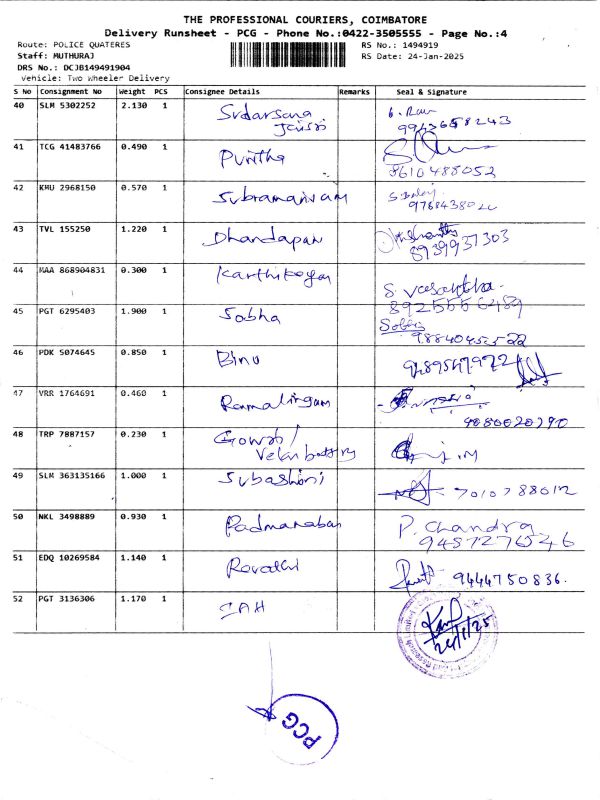 THE PROFESSIONAL COURIERS, COIMBATORE
Delivery Runsheet - PCG - Phone No.:0422-3505555 - Page No.:4
Route: POLICE QUATERES RS No.: 1494919
Staff: MUTHURAJ RS Date: 24-Jan-2025
DRS No.: DCJB149491904
Vehicle: Two Wheeler Delivery
S No Consignment No Weight PCS Consignee Details Remarks Seal & Signature
40 SLM 5302252 2.130 1 Sudarsana
41 TCG 41483766 0.490 1 Punitha
8610488052
42 KMU 2968150 0.570 1 Subramaniyam
43 TVL 155250 1.220 1 Dhandapani
8939937303
44 MAA 868904831 0.300 1 Karthikeyan
S. Vasantha
8925556489
45 PGT 6295403 1.900 1 Sobha
Sobha
46 PDK 5074645 0.850 1 Binu
47 VRR 1764691 0.460 1 Ramalingam
48 TRP 7887157 0.230 1 Gowri /
Velan battery
49 SLM 363135166 1.000 1 Subashini
50 NKL 3498889 0.930 1 Padmanaban P. Chandra
51 EDQ 10269584 1.140 1 Revathi 9444750836.
52 PGT 3136306 1.170 1 IAH
24/1/25
PCG